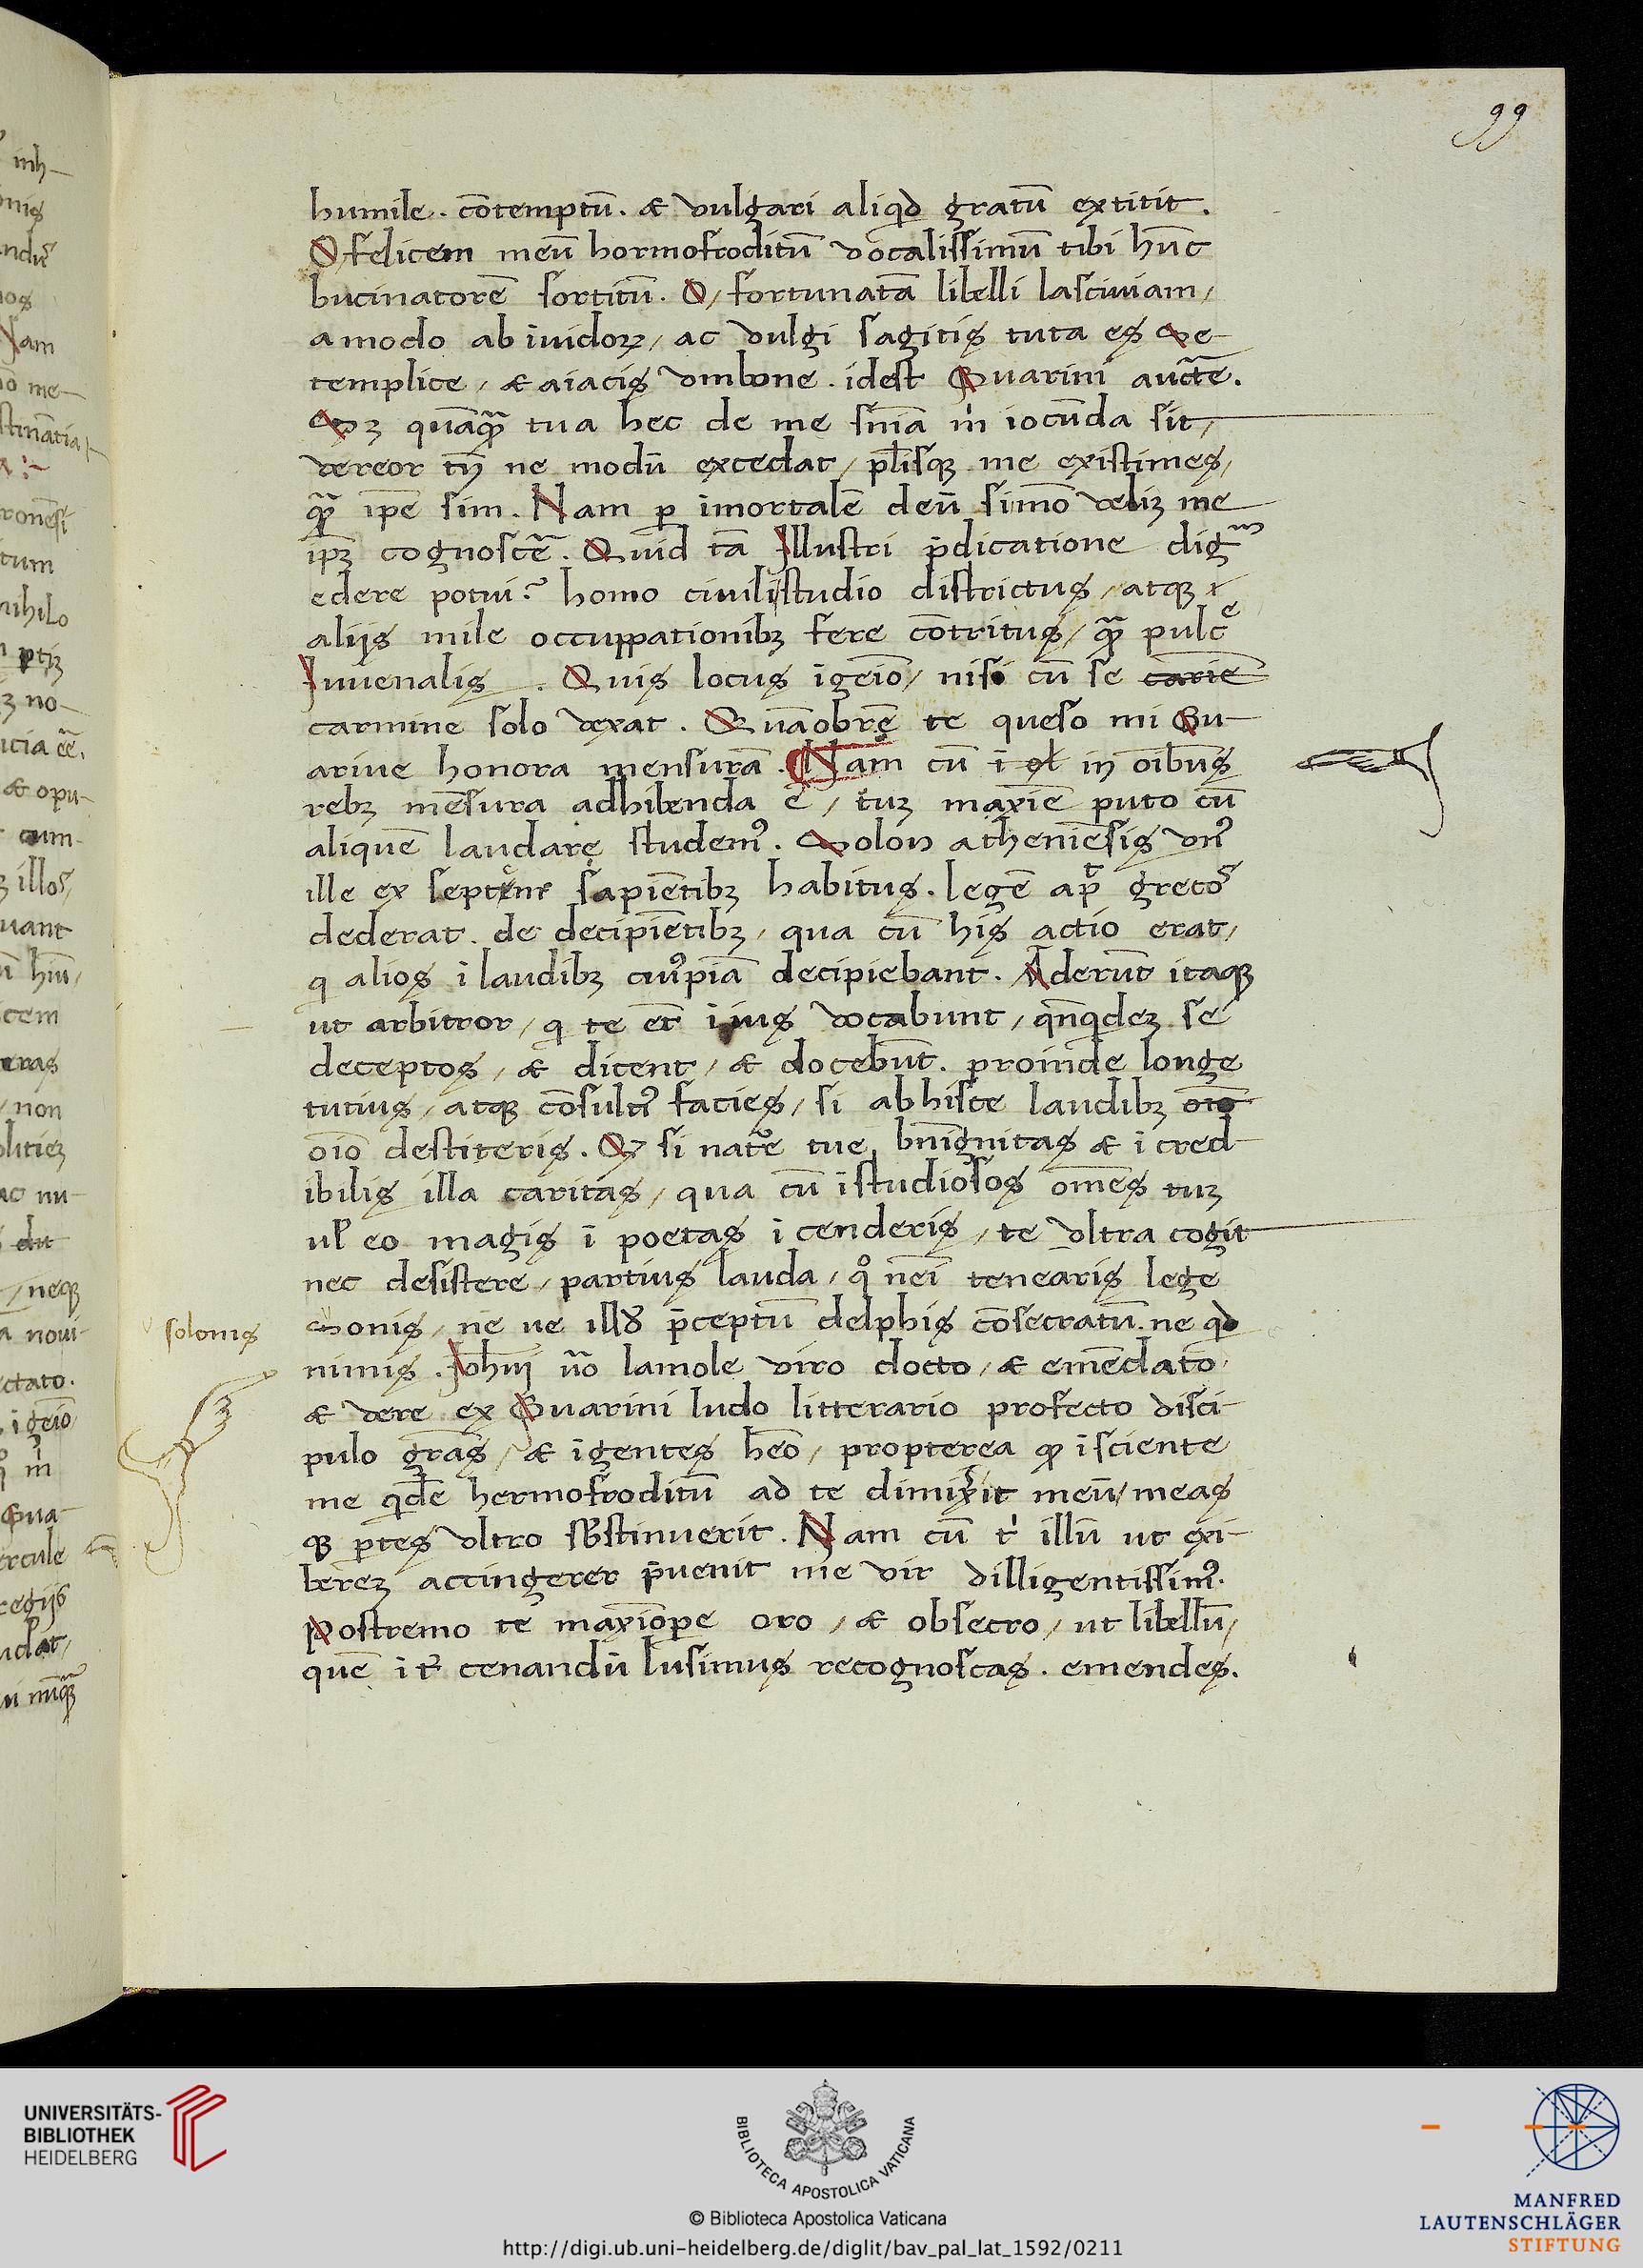 99
humile. cōtemptū. & vulgari aliqd gratū extitit.
O felicem meū hormofroditū vocalissimū tibi hūc
bucinatorē sortitū. O, fortunatā libelli lasciuiam,
amodo ab īuidorꝝ, ac vulgi sagitis tuta es Se-
templice, & aiacis vmbone. idest Guarini auctē.
Sꝫ quāq̄ꝫ tua hec de me sn̄ia m̄ iocūda sit,
vereor tn̄ ne modū excedat, pl̄isqꝫ me existimes,
q̄ꝫ ip̄e sim. Nam ꝑ īmortalē deū simō veliꝫ me
ip̄ꝫ cognoscē. Quid tā Illustri p̄dicatione digᵐ
edere potui? homo ciuili studio districtus, atqꝫ
aliis mile occuppationibꝫ fere cōtritus, q̄ꝫ pulcᵉ
Iuuenalis. Quis locus īgeīo, nisi cū se cariē
carmine solo vexat. Quāobrē te queso mi Gu-
arine honora mensurā. Nam cū ī ol in oībus
rebꝫ mēsura adhibenda ē, tuꝫ maxīe puto cū
aliquē laudare studemꝰ. Solon atheniēsis vnꝰ
ille ex septem sapiētibꝫ habitus. legē ap̄ grecos
dederat. de decipiētibꝫ, qua cū his actio erat,
q alios ī laudibꝫ cuiꝰpiā decipiebant. Aderūt itaqꝫ
ut arbitror, q te et̄ ī ius vocabunt, qn̄qdeꝫ se
deceptos, & dicent, & docebūt. proinde longe
tutius, atqꝫ cōsultꝰ facies, si ab hisce laudibꝫ oīo
oīo destiteris. Qꝫ si natē tue bn̄ignitas & ī cred
ibilis illa caritas, qua cū ī studiosos om̄es tuꝫ
ul̄ eo magis ī poetas ī cenderis, te vltra cogit
nec desistere, partius lauda, qº nēi tenearis lege
solonis
Sonis, ne ue illd p̄ceptū delphis cōsecratū. ne qd
nimis. Joh̄ni ūo lamole viro docto, & emēdato
& vere ex Guarini ludo litterario profecto disci-
pulo grās, & īgentes h̄eo, propterea qꝫ īsciente
me qdē hermofroditū ad te dimixit meū, meas
qꝫ ꝑtes vltro sb̄stinuerit. Nam cū t̄ illū ut exi-
bereꝫ accingerer p̄uenit me vir dilligentissimꝰ.
Postremo te maxīoꝑe oro, & obsecro, ut libellū,
quē īt̄ cenandū lusimus recognoscas. emendes.
UNIVERSITÄTS-
BIBLIOTHEK
HEIDELBERG
BIBLIOTECA APOSTOLICA VATICANA
© Biblioteca Apostolica Vaticana
http://digi.ub.uni-heidelberg.de/diglit/bav_pal_lat_1592/0211
MANFRED
LAUTENSCHLÄGER
STIFTUNG